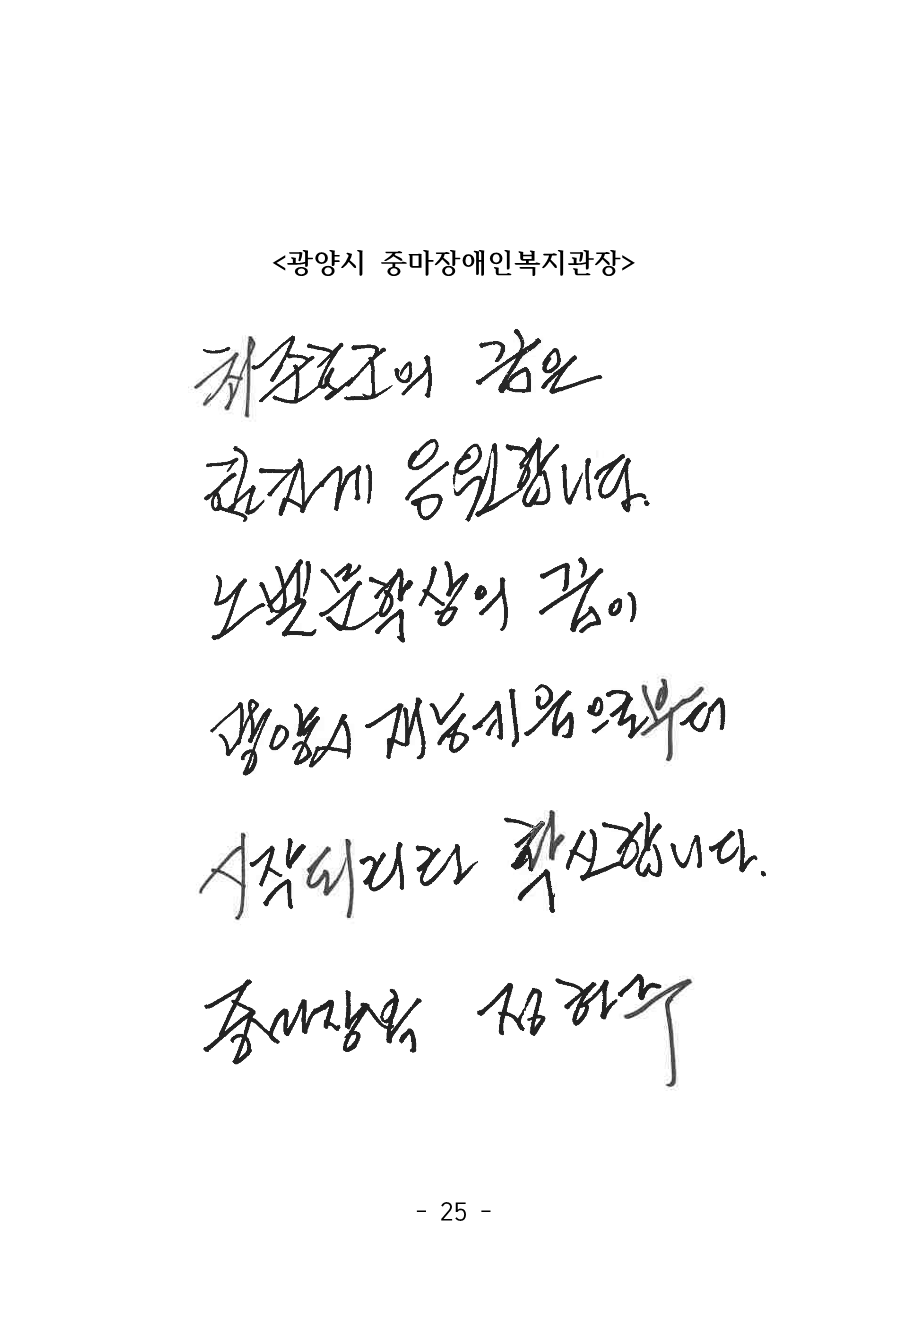 <광양시 중마장애인복지관장>
의 꿈은
힘차게 응원합니다.
노벨문학상의 꿈이
광양시 재능키움으로부터
시작되리라 확신합니다.
중마장복 정헌주
- 25 -